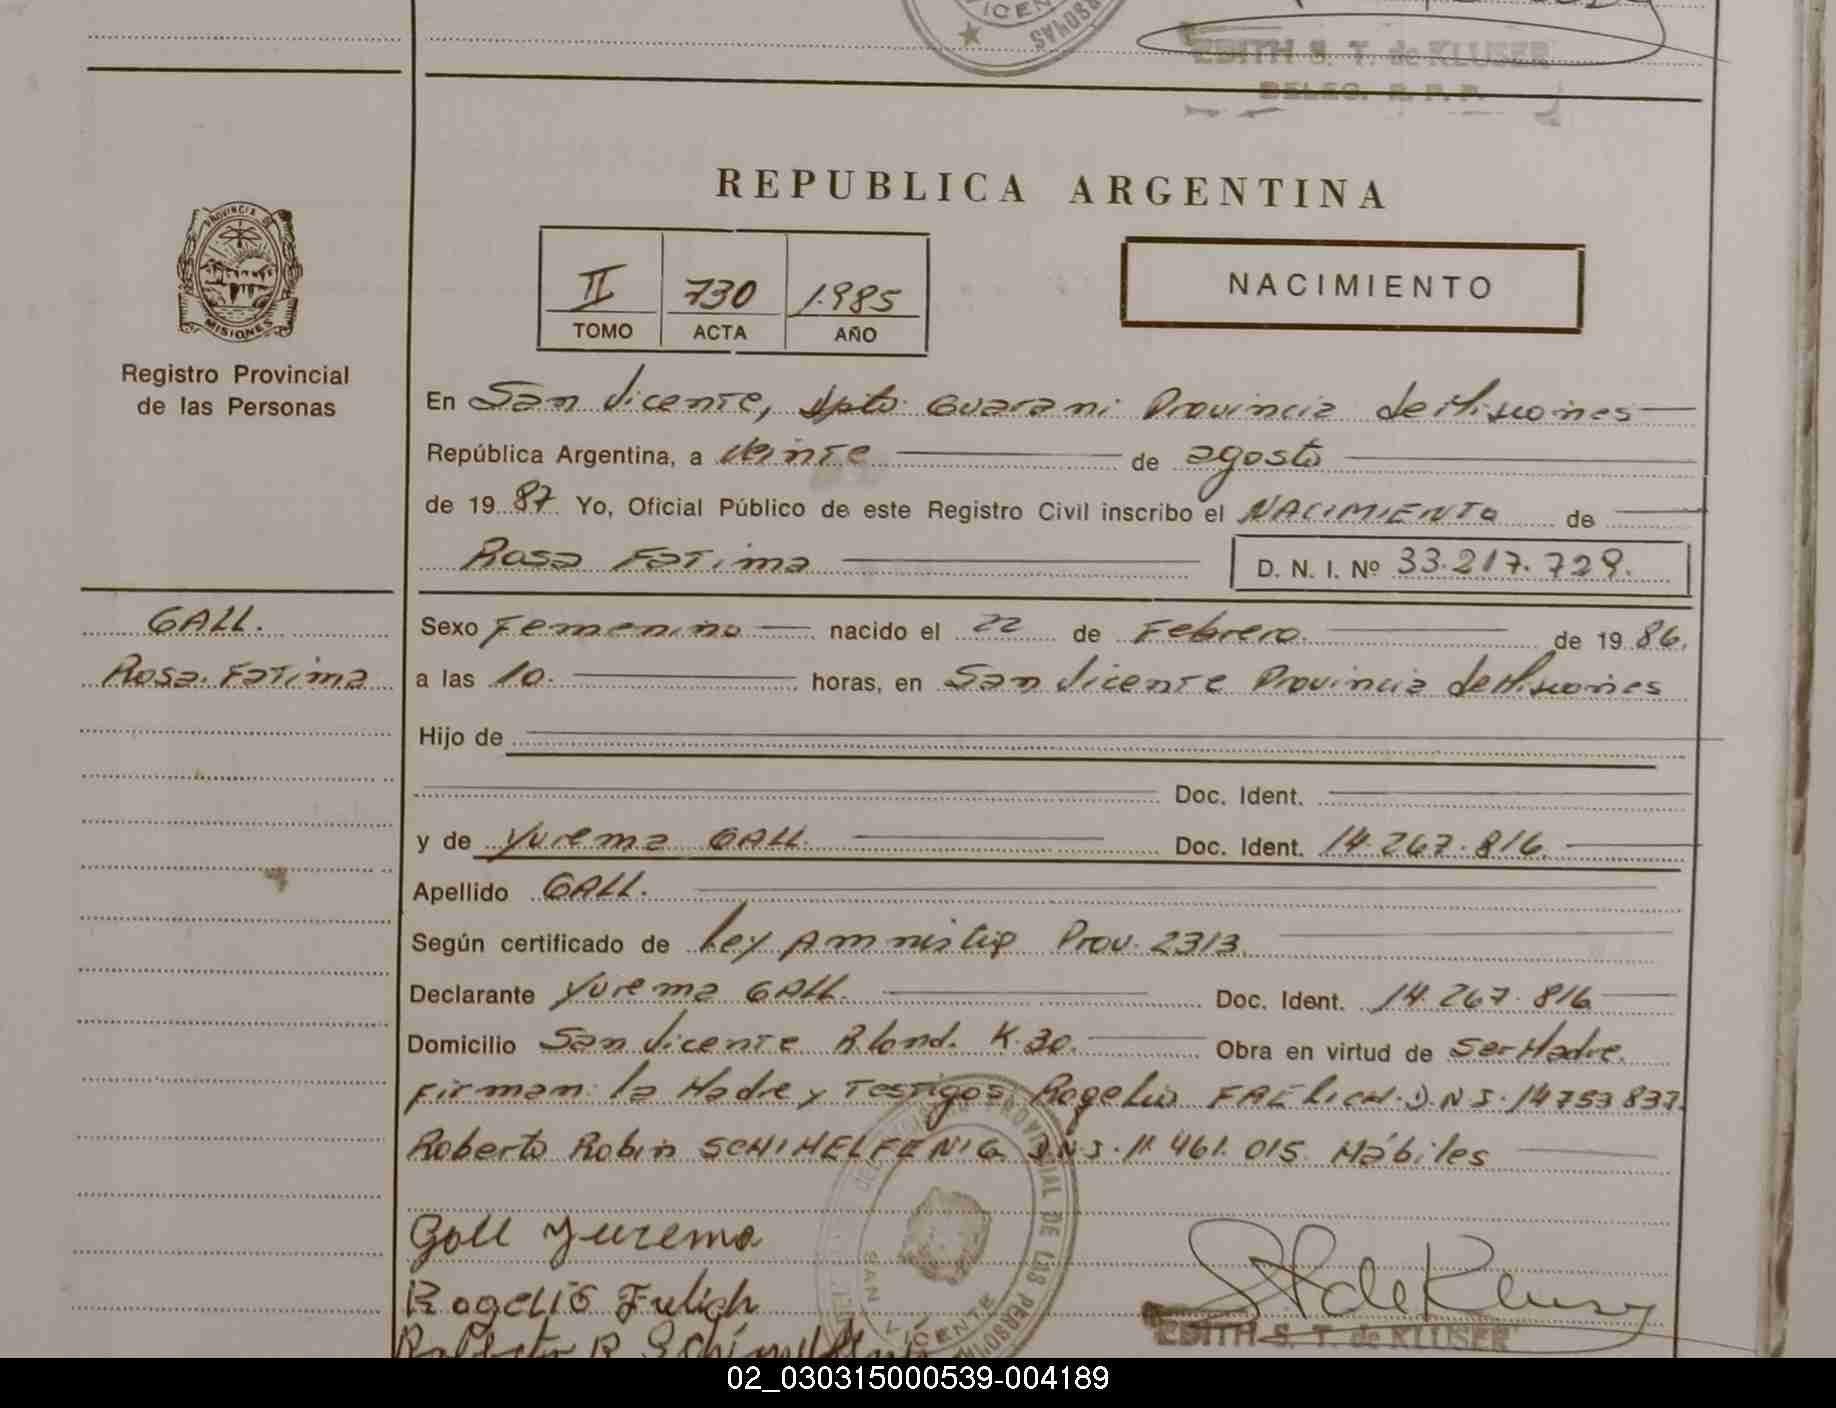 VICENTE
PERSONAS
EDITH S. T. de KLUSER
DELEG. R. P. P.
REPUBLICA ARGENTINA
PROVINCIA DE
MISIONES
II 730 1.985
TOMO ACTA AÑO
NACIMIENTO
Registro Provincial
de las Personas
En San Vicente, Dpto Guarani Provincia de Misiones
República Argentina, a veinte de agosto
de 19 87. Yo, Oficial Público de este Registro Civil inscribo el NACIMIENTO de
Rosa Fatima D. N. I. Nº 33.217.729.
GALL.
Rosa. Fatima
Sexo Femenino nacido el 22 de Febrero. de 19 86.
a las 10. horas, en San Vicente Provincia de Misiones
Hijo de
Doc. Ident.
y de Yurema GALL. Doc. Ident. 14.267.816.
Apellido GALL.
Según certificado de Ley Amnistia Prov. 2313.
Declarante Yurema GALL. Doc. Ident. 14.267.816
Domicilio San Vicente R. K.30. Obra en virtud de Ser Madre.
Firman: la Madre y Testigos Rogelio D.N.I. 14753837.
Roberto Robin SCHIMELFENIG D.N.I. 11.461.015. Hábiles
Gall Yurema
Rogelio
Roberto R
PROVINCIAL DE LAS PERSONAS
SAN VICENTE
EDITH S. T. de KLUSER
02_030315000539-004189